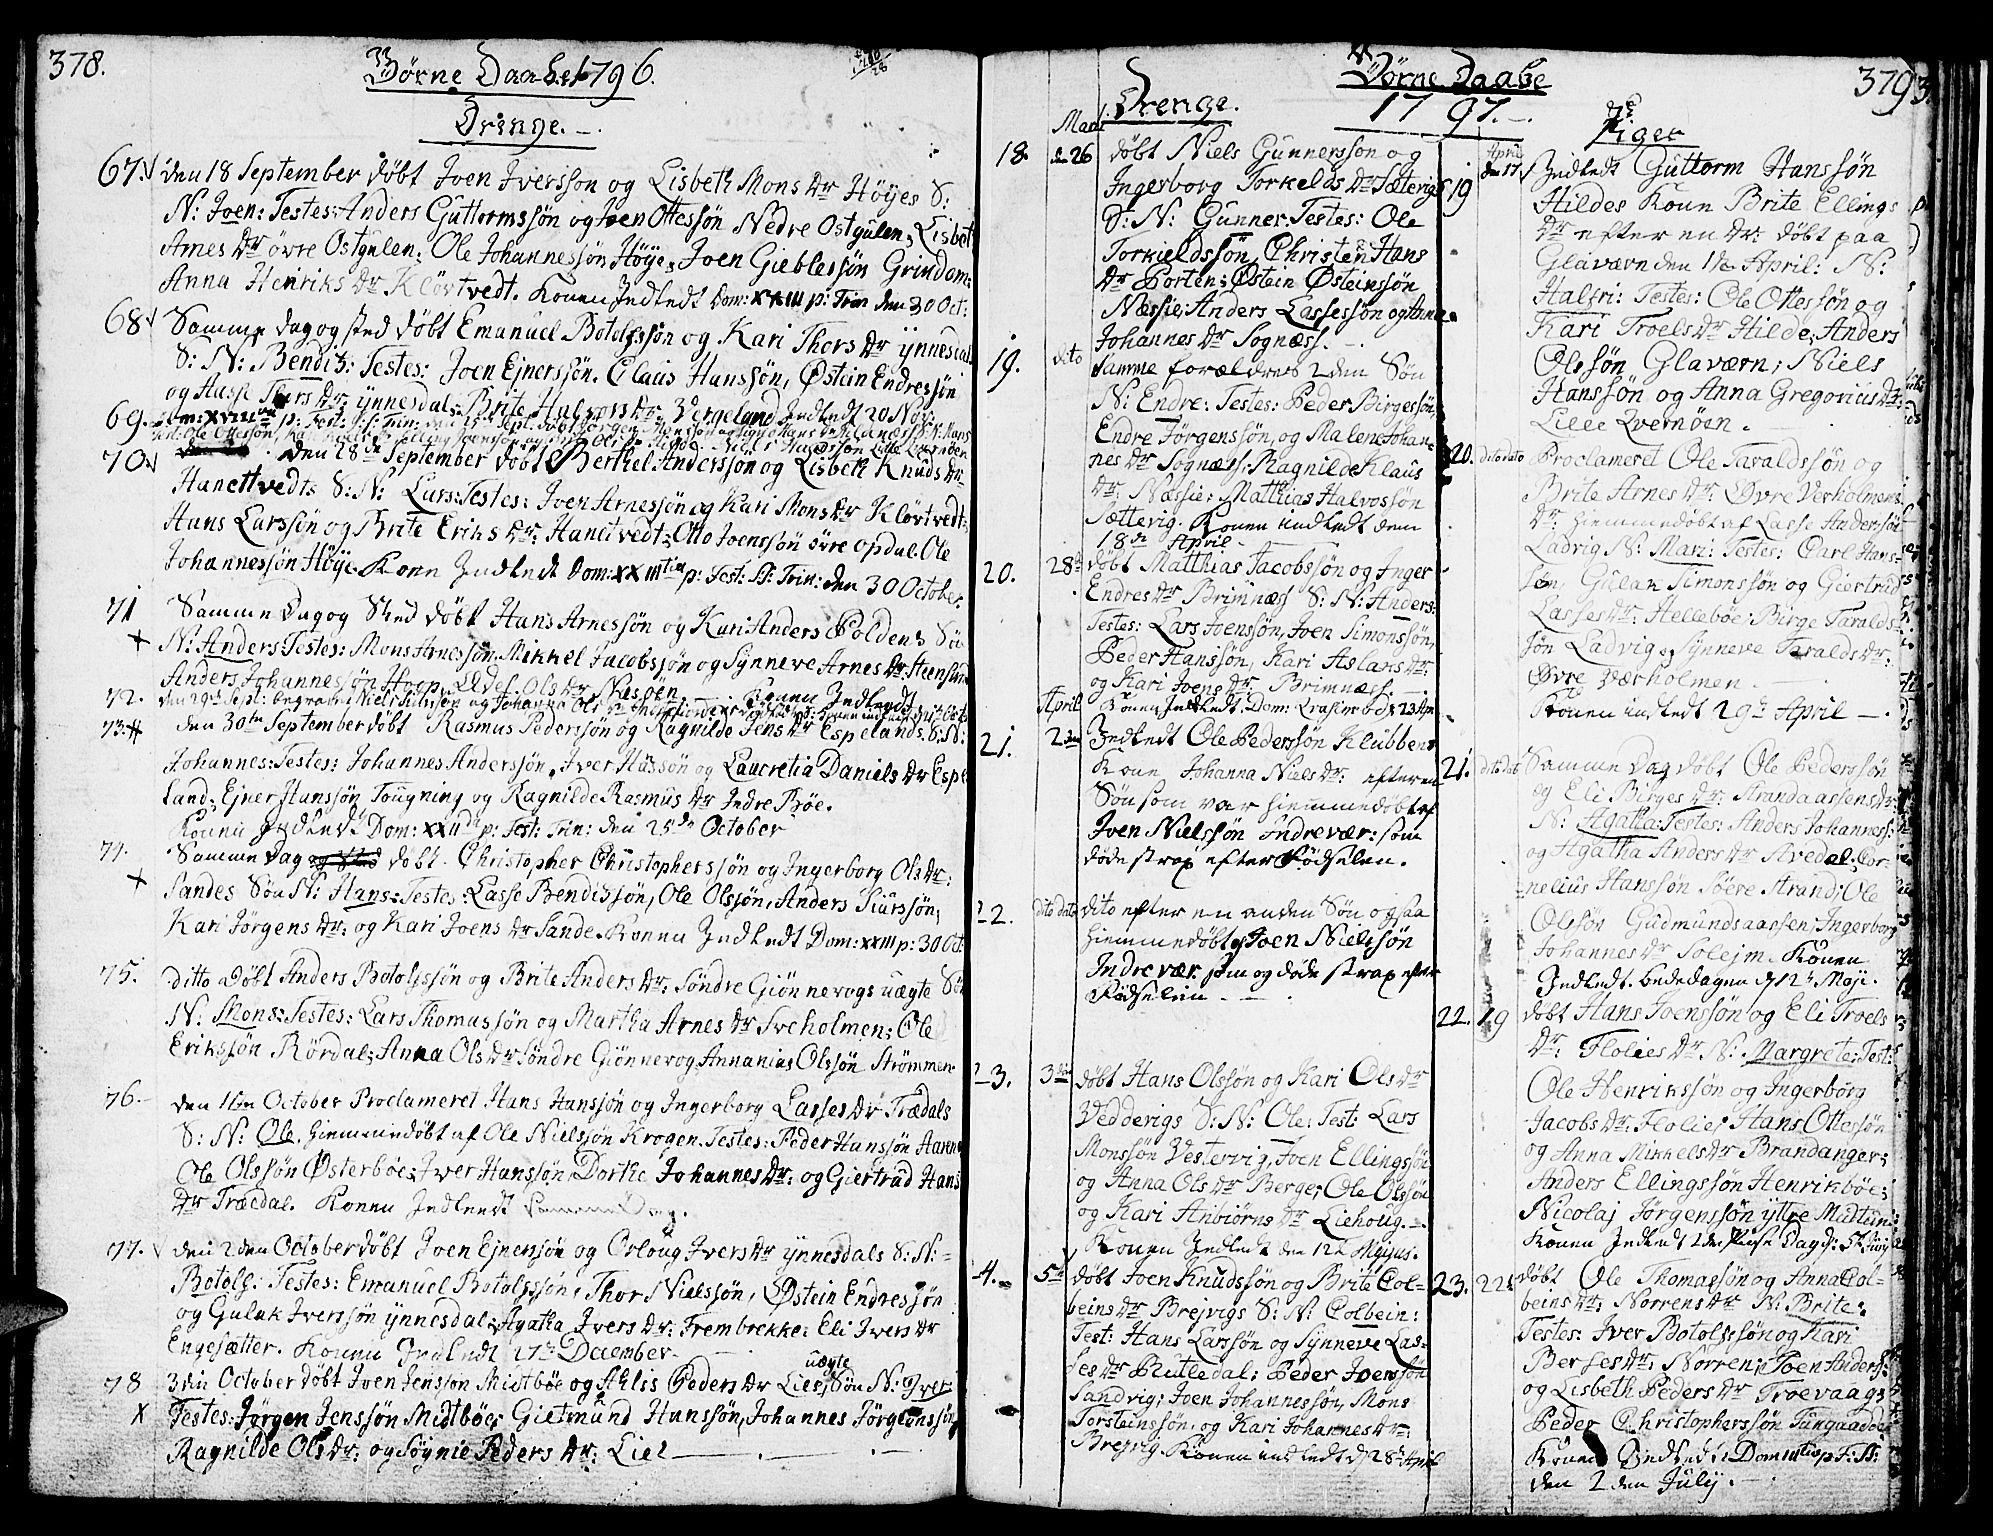 378.
Børne Daabe 1796.
Drenge.
67. den 18 September døbt Joen Iversson og Lisbeth Mons Dr Höyes S:
N: Joen: Testes: Anders Guttormssön og Joen Ottessön Nedre Ostgulen; Lisbet
Arnes Dr övre Ostgulen; Ole Johannessön Höye; Joen Gieblessön Grindem;
Anna Henriks Dr Klövtvedt. Konen Indledt Dom: XXIII p: Trin den 30 Oct:
68 Samme dag og sted döbt Emanuel Botolfssön og Kari Thors Dr ÿnnesdals
S: N: Bendix: Testes: Joen Ejnerssön. Claus Hanssön, Østein Endressön
og Aasse Thors Dr: ÿnnesdal; Brite Halvors Dr: Vergeland Indledt 20 Nov:
69.
70. den 28de September döbt Berthel Anderssön og Lisbeth Knuds Dr
Hanettvedts S: N: Lars: Testes: Joen Arnessön og Kari Mons Dr Klövtvedt;
Hans Larssön og Brite Eriks Dr: Hanetvedt; Otto Joenssön övre Opdal. Ole
Johannessön Höye. Konen Indledt Dom: XXIIItia p: Fest: S: Trin: den 30 October.
71 Samme Dag og Sted döbt Hans Arnessön og Kari Anders Poldens Sö
N: Anders: Testes: Mons Arnessön. Mikkel Jacobssön og Synneve Arnes Dr Steensund
Anders Johannessön Hop. Eldef. Ols Dr Nesöen. Konen Indledt
72. den 29de Sept:
73. den 30te September döbt Rasmus Pederssön og Ragnilde Jens Dr Espelands. S: N:
Johannes: Testes: Johannes Anderssön. Iver Hüssön og Laucretia Daniels Dr Espe
land; Ejner Hanssön Tougning og Ragnilde Rasmus Dr Indre Böe.
Konen Indledt Dom: XXII p: Fest: Trin: den 25de October
74. Samme Dag döbt. Christopher Christopherssön og Ingerborg Ols Dr:
Sandes Sön N: Hans: Testes: Lasse Bendixsön, Ole Olssön, Anders Siurssön;
Kari Jörgens Dr: og Kari Joens Dr Sande. Konen Indledt Dom: XXIII p: 30 Oct
75. ditto döbt Anders Botolfssön og Brite Anders Dr: Söndre Giönnevogs uægte Sön
N: Mons: Testes: Lars Thomassön og Martha Arnes Dr Sveholmen; Ole
Erikssön Rördal; Anna Ols Dr Söndre Giönnevog Annanias Olssön Strömmen
76. den 1ste October Proclameret Hans Hanssön og Ingerborg Lasses Dr Trædals
S: N: Ole. hiemmedöbt af Ole Nielssön Krogen. Testes: Peder Hanssön Haven
Ole Olssön Østerböe; Iver Hanssön, Dorthe Johannes Dr: og Giertrud Hans
Dr Trædal. Konen Indledt samme Dag.
77. den 2den October döbt Joen Ejnerssön og Orloug Ivers Dr ÿnnesdals S: N:
Botolf: Testes: Emanuel Botolfssön, Thor Nielssön, Østein Endressön
og Gulak Iverssön ÿnnesdal; Agatha Ivers Dr: Frembrekke; Eli Ivers Dr
Engesætter. Konen Indledt 17de December.
78 3die October döbt Joen Jensson Midtböe og Ahlis Peders Dr Lies, uægte Sön N: Iver
Testes: Jörgen Jenssön Midtböe; Gietmund Hanssön, Johannes Jörgenssön
Ragnilde Ols Dr: og Sögnie Peders Dr: Lie
Børne Daabe
1797.
379
Drenge.
Mart.
18. d 26 döbt Niels Gunnersson og
Ingerborg Torkelds Dr Sæterigs
S: N: Gunner. Testes: Ole
Torkieldssön, Christen Hans
Dr Porten; Østein Østeinssön
Næssie; Anders Lassessön og Anne
Johannes Dr Sognæss.
19. dito Samme forældres 2den Sön
N: Endre: Testes: Peder Birgessön,
Endre Jörgenssön, og Malene Johan
nes Dr Sognæss; Ragnilde Klaus
Dr: Næssie: Matthias Halvossön
Sættevig. Konen indledt den
18de April
20. 28d döbt Matthias Jacobssön og Inger
Endres Dr Brimnæss S: N: Anders:
Testes: Lars Joenssön, Joen Simonssön,
Peder Hanssön, Kari Aslaks Dr:
og Kari Joens Dr Brimnæss.
Konen Indledt: Dom: Qvasimod: d 23 Apr
April
21. 2den Indledt Ole Pederssön Klubbens
Kone Johanna Niels Dr: efter en
Sön som var hiemmedöbt af
Joen Nielssön Indrevær: som
döde strax efter Födselen.
22. dito dito dito efter en anden Sön ogsaa
hiemmedöbt af Joen Nielssön
Indrevær. som og döde strax efter
Födselen.
23. 3die döbt Hans Olssön og Kari Ols Dr
Vedderigs S: N: Ole: Test: Lars
Monssön Vestervig, Joen Ellingssön
og Anna Ols Dr Berge; Ole Olssön
og Kari Anbiörns Dr Liehoug.
Konen Indledt den 12te Majus.
24. 5te döbt Joen Knudssön og Brite Col-
beins Dr Brejvigs S: N: Colbein:
Test: Hans Larssön og Synneve Las-
ses Dr Rutledal; Peder Joenssön
Sandvig; Joen Johannessön, Mons
Torsteinssön, og Kari Johannes Dr:
Brejvig. Konen indledt d 28de April
Piger
April
19 den 17. Indledt Guttorm Hanssön
Hildes Koun Brite Ellings
Dr efter en Dr: döbt paa
Glaværn den 1te April: N:
Halfri: Testes: Ole Ottessön og
Kari Troels Dr Hilde; Anders
Olssön Glaværn; Niels
Hanssön og Anna Gregorius Dr:
Lille Qvernöen.
20. dito dato Proclameret Ole Taraldssön og
Brite Arnes Dr: Øvre Verholmens
Dr: hiemmedöbt af Lasse Anderssön
Ladvig N: Mari: Testes: Carl Hans-
sön, Gulak Simonssön og Giertrud
Lasses Dr: Helleböe; Birge Taralds-
sön Ladvig, Synneve Taralds Dr:
Øvre Værholmen.
Konen indledt 29de April
21. dito dato Samme Dag döbt Ole Pederssön
og Eli Birges Dr: Strandaassens Dr:
N: Agatha: Testes: Anders Johanness:
og Agatha Anders Dr Avedal; Cor-
nelius Hanssön Söere Strand; Ole
Olssön Gudmundsaassen; Ingerborg
Johannes Dr Solejm. Konen
Indledt. bededagen d 12te Maji.
22. 19 döbt Hans Joenssön og Eli Troels
Dr: Flolies Dr N: Margrete: Test:
Ole Henrikssön og Ingerborg
Jacobs Dr: Flolie; Hans Ottessön
og Anna Mikkels Dr Brandanger;
Anders Ellingssön Henrikböe;
Nicolaj Jörgenssön ÿttre Midtun:
Konen Indledt 2den Pinse Dag d: 5te Junij
23. 22 döbt Ole Thomassön og Anna Col-
beins Dr: Norrens Dr N: Brite:
Testes: Iver Botolfssön og Kari
Berses Dr: Norren; Joen Anders:
og Lisbeth Peders Dr Troevaag;
Peder Christopherssön Tungaadöe
Konen Indledt: Dom IIItia p: F: S:
den 2den Julij.